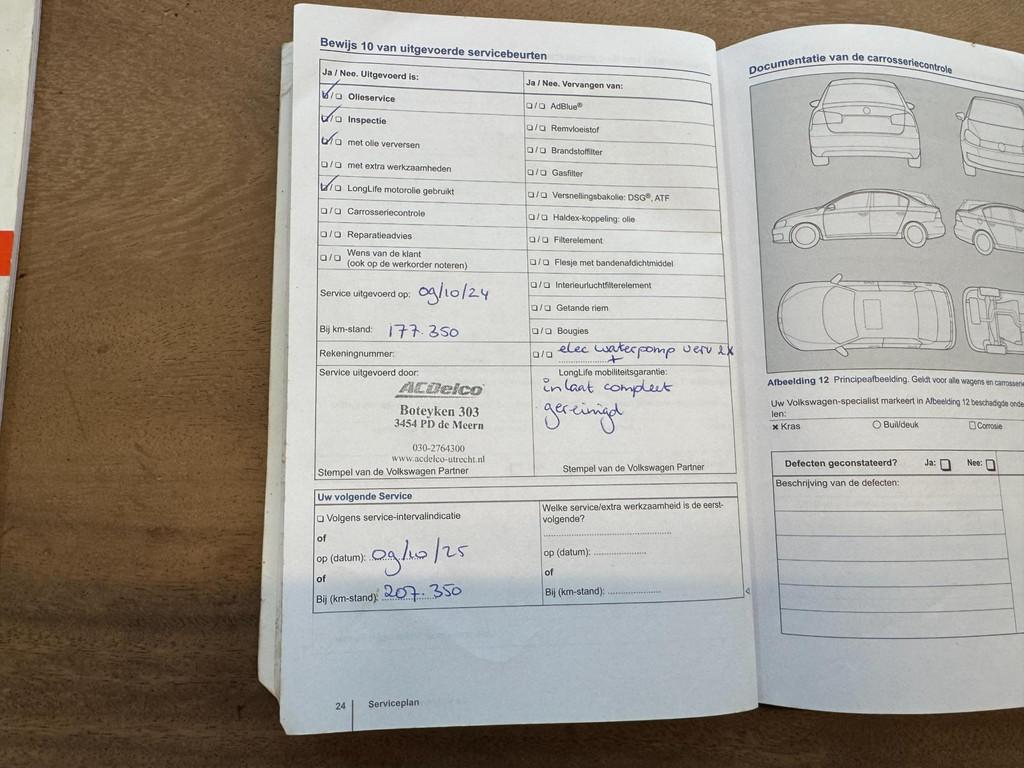 Bewijs 10 van uitgevoerde servicebeurten
Ja / Nee. Uitgevoerd is:
☑/☐ Olieservice
☑/☐ Inspectie
☑/☐ met olie verversen
☐/☐ met extra werkzaamheden
☑/☐ LongLife motorolie gebruikt
☐/☐ Carrosseriecontrole
☐/☐ Reparatieadvies
☐/☐ Wens van de klant
(ook op de werkorder noteren)
Service uitgevoerd op: 09/10/24
Bij km-stand: 177.350
Rekeningnummer:
Service uitgevoerd door:
ACDelco
Boteyken 303
3454 PD de Meern
030-2764300
www.acdelco-utrecht.nl
Stempel van de Volkswagen Partner
Ja / Nee. Vervangen van:
☐/☐ AdBlue®
☐/☐ Remvloeistof
☐/☐ Brandstoffilter
☐/☐ Gasfilter
☐/☐ Versnellingsbakolie: DSG®, ATF
☐/☐ Haldex-koppeling: olie
☐/☐ Filterelement
☐/☐ Flesje met bandenafdichtmiddel
☐/☐ Interieurluchtfilterelement
☐/☐ Getande riem
☐/☐ Bougies
☐/☐ elec waterpomp verv 2x
+
LongLife mobiliteitsgarantie:
inlaat compleet
gereinigd
Stempel van de Volkswagen Partner
Uw volgende Service
☐ Volgens service-intervalindicatie
of
op (datum): 09/10/25
of
Bij (km-stand): 207.350
Welke service/extra werkzaamheid is de eerst-
volgende?
op (datum):
of
Bij (km-stand):
24 Serviceplan
Documentatie van de carrosseriecontrole
Afbeelding 12 Principeafbeelding. Geldt voor alle wagens en carrosserie
Uw Volkswagen-specialist markeert in Afbeelding 12 beschadigde onde
len:
× Kras ○ Buil/deuk ☐ Corrosie
Defecten geconstateerd? Ja: ☐ Nee: ☐
Beschrijving van de defecten: